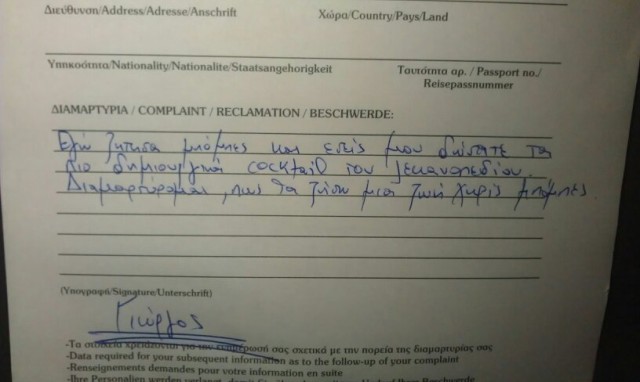 Διεύθυνση/Address/Adresse/Anschrift
Χώρα/Country/Pays/Land
Υπηκοότητα/Nationality/Nationalite/Staatsangehorigkeit
Ταυτότητα αρ. / Passport no./
Reisepassnummer
ΔΙΑΜΑΡΤΥΡΙΑ / COMPLAINT / RECLAMATION / BESCHWERDE:
Εγώ ζήτησα μπόμπες και εσείς μου δώσατε τα
πιο δημιουργικά cocktail του λεκανοπεδίου.
Διαμαρτύρομαι, πως θα ζήσω μια ζωή χωρίς μπόμπες.
(Υπογραφή/Signature/Unterschrift)
Γιώργος
-Τα στοιχεία χρειάζονται για την ενημέρωσή σας σχετικά με την πορεία της διαμαρτυρίας σας
-Data required for your subsequent information as to the follow-up of your complaint
-Renseignements demandes pour votre information en suite
-Ihre Personalien werden verlangt, damit